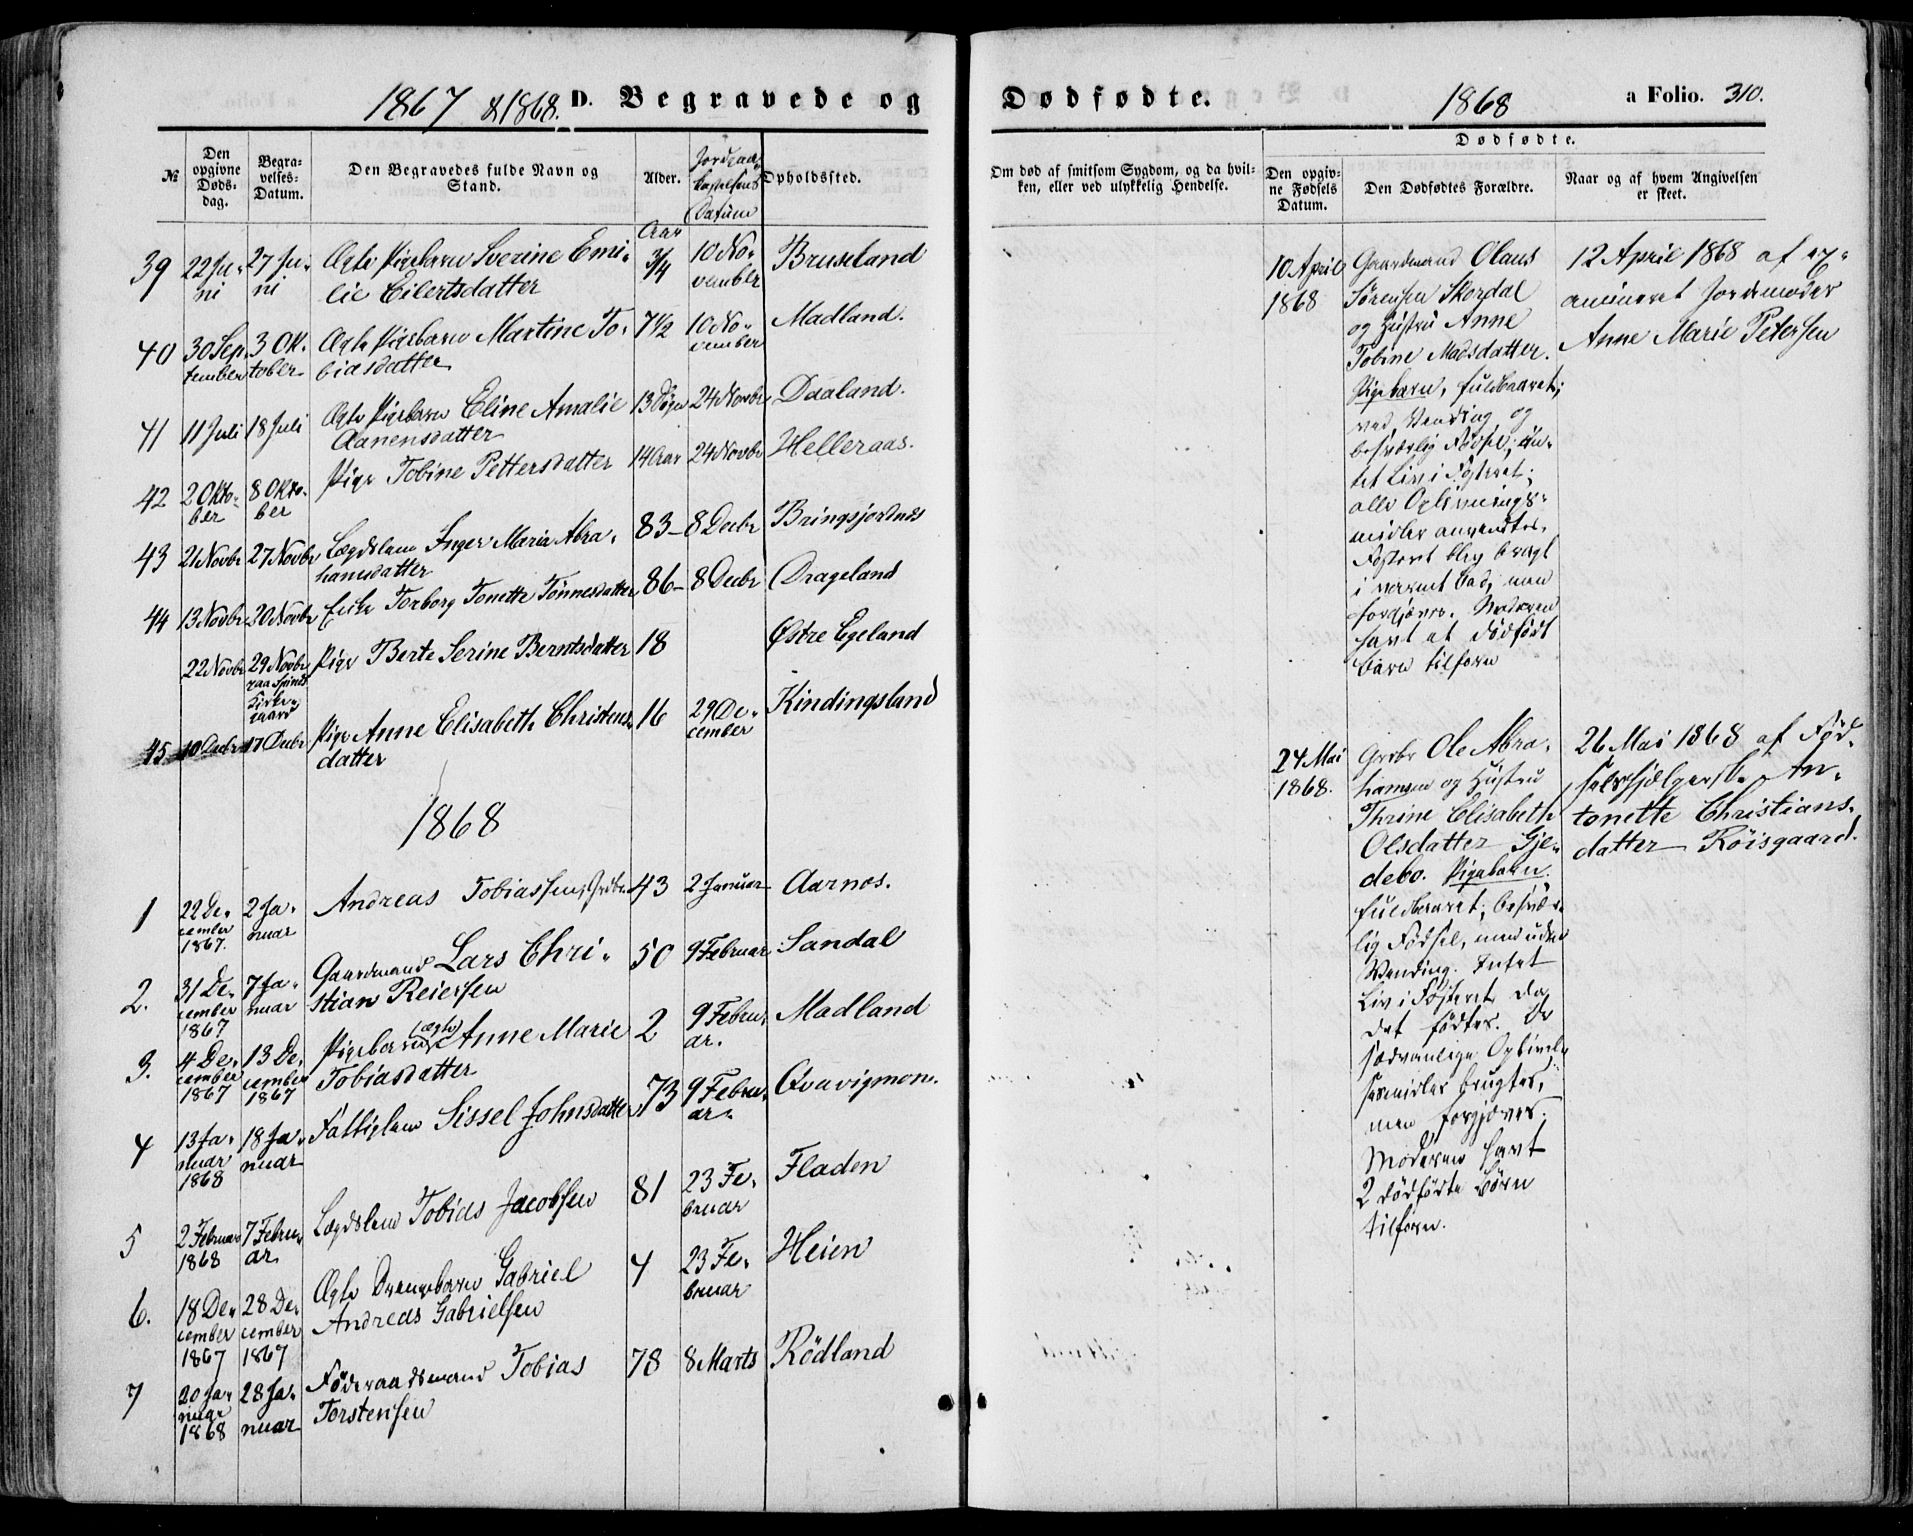 1867 & 1868. D. Begravede og
№
Den opgivne Døds-dag.
Begra-velses-Datum.
Den Begravedes fulde Navn og Stand.
Alder.
Jordpaa-kastelsens Datum
Opholdssted.
Aar
39 22 Ju-ni 27 Ju-ni Ægte Pigebarn Sverine Emi-
lie Eilertsdatter 3/4 10 No-vember Bruseland
40 30 Sep-tember 3 Ok-tober Ægte Pigebarn Martine To-
biasdatter 7 1/2 10 No-vember Madland.
41 11 Juli 18 Juli Ægte Pigebarn Eline Amalie
Aanensdatter 13 Døgn 24 Novbr Daaland.
42 2 Okto-ber 8 Okto-ber Pige Tobine Pettersdatter 14 Aar 24 Novbr Helleraas.
43 21 Novbr 27 Novbr Lægdslem Inger Maria Abra-
hamsdatter 83 - 8 Decbr Bringsjordnes
44 13 Novbr 20 Novbr Enke Torborg Tonette Tønnesdatter 86 - 8 Decbr Drageland
22 Novbr 29 Novbr paa Spinds Kirke-gaard Pige Berte Serine Berntsdatter 18 Østre Egeland
45 10 Decbr 17 Decbr Pige Anne Elisabeth Christens-
datter 16 29 De-cember Kindingsland
1868
1 22 De-cember 1867. 2 Ja-nuar Andreas Tobiassen, Grdbr 43 2 Januar Aarnes.
2. 31 De-cember 1867 7 Ja-nuar Gaardmand Lars Chri-
stian Reiersen 50 9 Februar Sandal
3. 4 De-cember 1867 13 De-cember 1867 Pigebarn (ægte) Anne Marie
Tobiasdatter 2 9 Febru-ar. Madland
4 13 Ja-nuar 1868 18 Ja-nuar Fattiglem Sissel Johnsdatter 73 9 Febru-ar. Qvavigmon.
5 2 Februar 1868 7 Febru-ar Lægdslem Tobias Jacobsen 81 23 Fe-bruar Fladen
6. 18 De-cember 1867 28 De-cember 1867 Ægte Drengebarn Gabriel
Andreas Gabrielsen 4 23 Fe-bruar Heien
7 20 Ja-nuar 1868 28 Ja-nuar Föderaadsmand Tobias
Torstensen 78 8 Marts Rödland
Dødfødte. 1868 a Folio. 310.
Dødfødte.
Om død af smitsom Sygdom, og da hvil-
ken, eller ved ulykkelig Hendelse.
Den opgiv-ne Fødsels Datum.
Den Dødfødtes Forældre.
Naar og af hvem Angivelsen
er skeet.
10 April
1868
Gaardmand Olaus
Sørensen Skordal
og Hustru Anne
Tobine Madsdatter.
Pigebarn, fuldbaaret;
ved Vending og
besværlig Fødsel; in-
tet Liv i Fosteret;
alle Oplivnings-
midler anvendtes.
Fosteret blev bragt
i varmt Bad; men
forgjæves. Moderen
havt et dødfødt
Barn tilforn
12 April 1868 af ex-
amineret Jordemoder
Anne Marie Petersen
24 Mai
1868.
Grdbr Ole Abra-
hamsen og Hustru
Thrine Elisabeth
Olsdatter Gje-
debo. Pigebarn.
fuldbaaret; besvær-
lig Fødsel, men uden
Vending. Intet
Liv i Fosteret, da
det fødtes. De
sædvanlige Oplivel-
sesmidler brugtes,
men forgjæves.
Moderen havt
2 dødfødte Børn
tilforn.
26 Mai 1868 af Fød-
selshjælperske An-
tonette Christians-
datter Röisgaard.